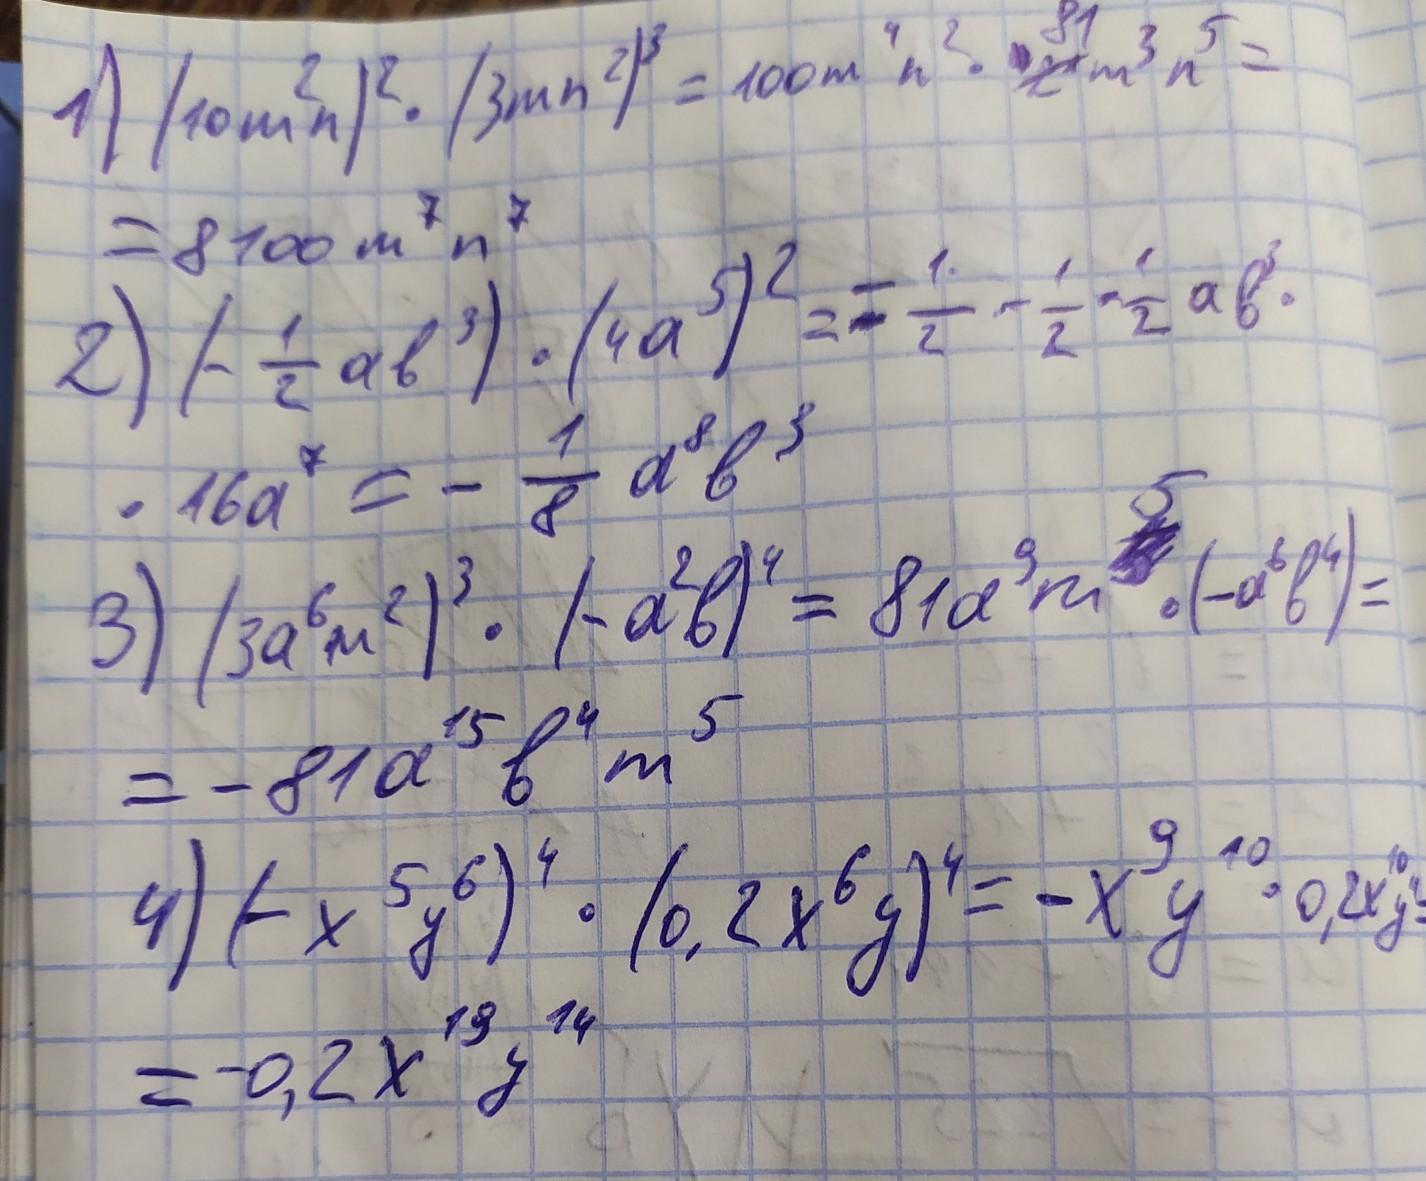 1) (10m²n)² · (3mn²)³ = 100m⁴n² · 81m³n⁵ =
= 8100m⁷n⁷
2) (-1/2 ab³) · (4a⁵)² = -1/2 - 1/2 · 1/2 ab³ ·
· 16a⁷ = -1/8 a⁸b³
3) (3a⁶m²)³ · (-a²b)⁴ = 81a⁹m⁵ · (-a⁶b⁴) =
= -81a¹⁵b⁴m⁵
4) (-x⁵y⁶)⁴ · (0,2x⁶y)⁴ = -x⁹y¹⁰ · 0,2x¹⁰y⁴=
= -0,2x¹⁹y¹⁴